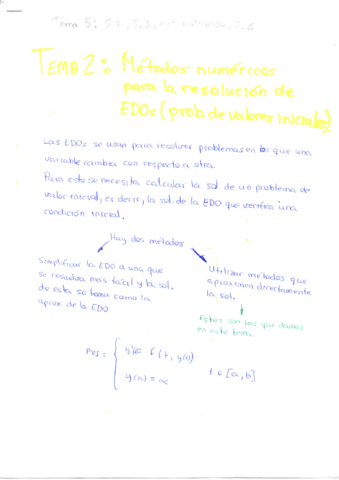 Tema 5: 5.2, 5.3, 5.6
TEMA 2: Métodos numéricos
para la resolución de
EDOs (prob de valores iniciales)
Las EDOs se usan para resolver problemas en los que una
variable cambia con respecto a otra.
Para esto se necesita calcular la sol de un problema de
valor inicial, es decir, la sol de la EDO que verifica una
condición inicial.
Hay dos métodos
Simplificar la EDO a una que
se resuelva más fácil y la sol.
de esta se toma como la
aprox de la EDO.
Utilizar métodos que
aproximan directamente
la sol.
Estos son los que damos
en este tema
PVI = { y' = f(t, y(t))
y(a) = α t ∈ [a, b]